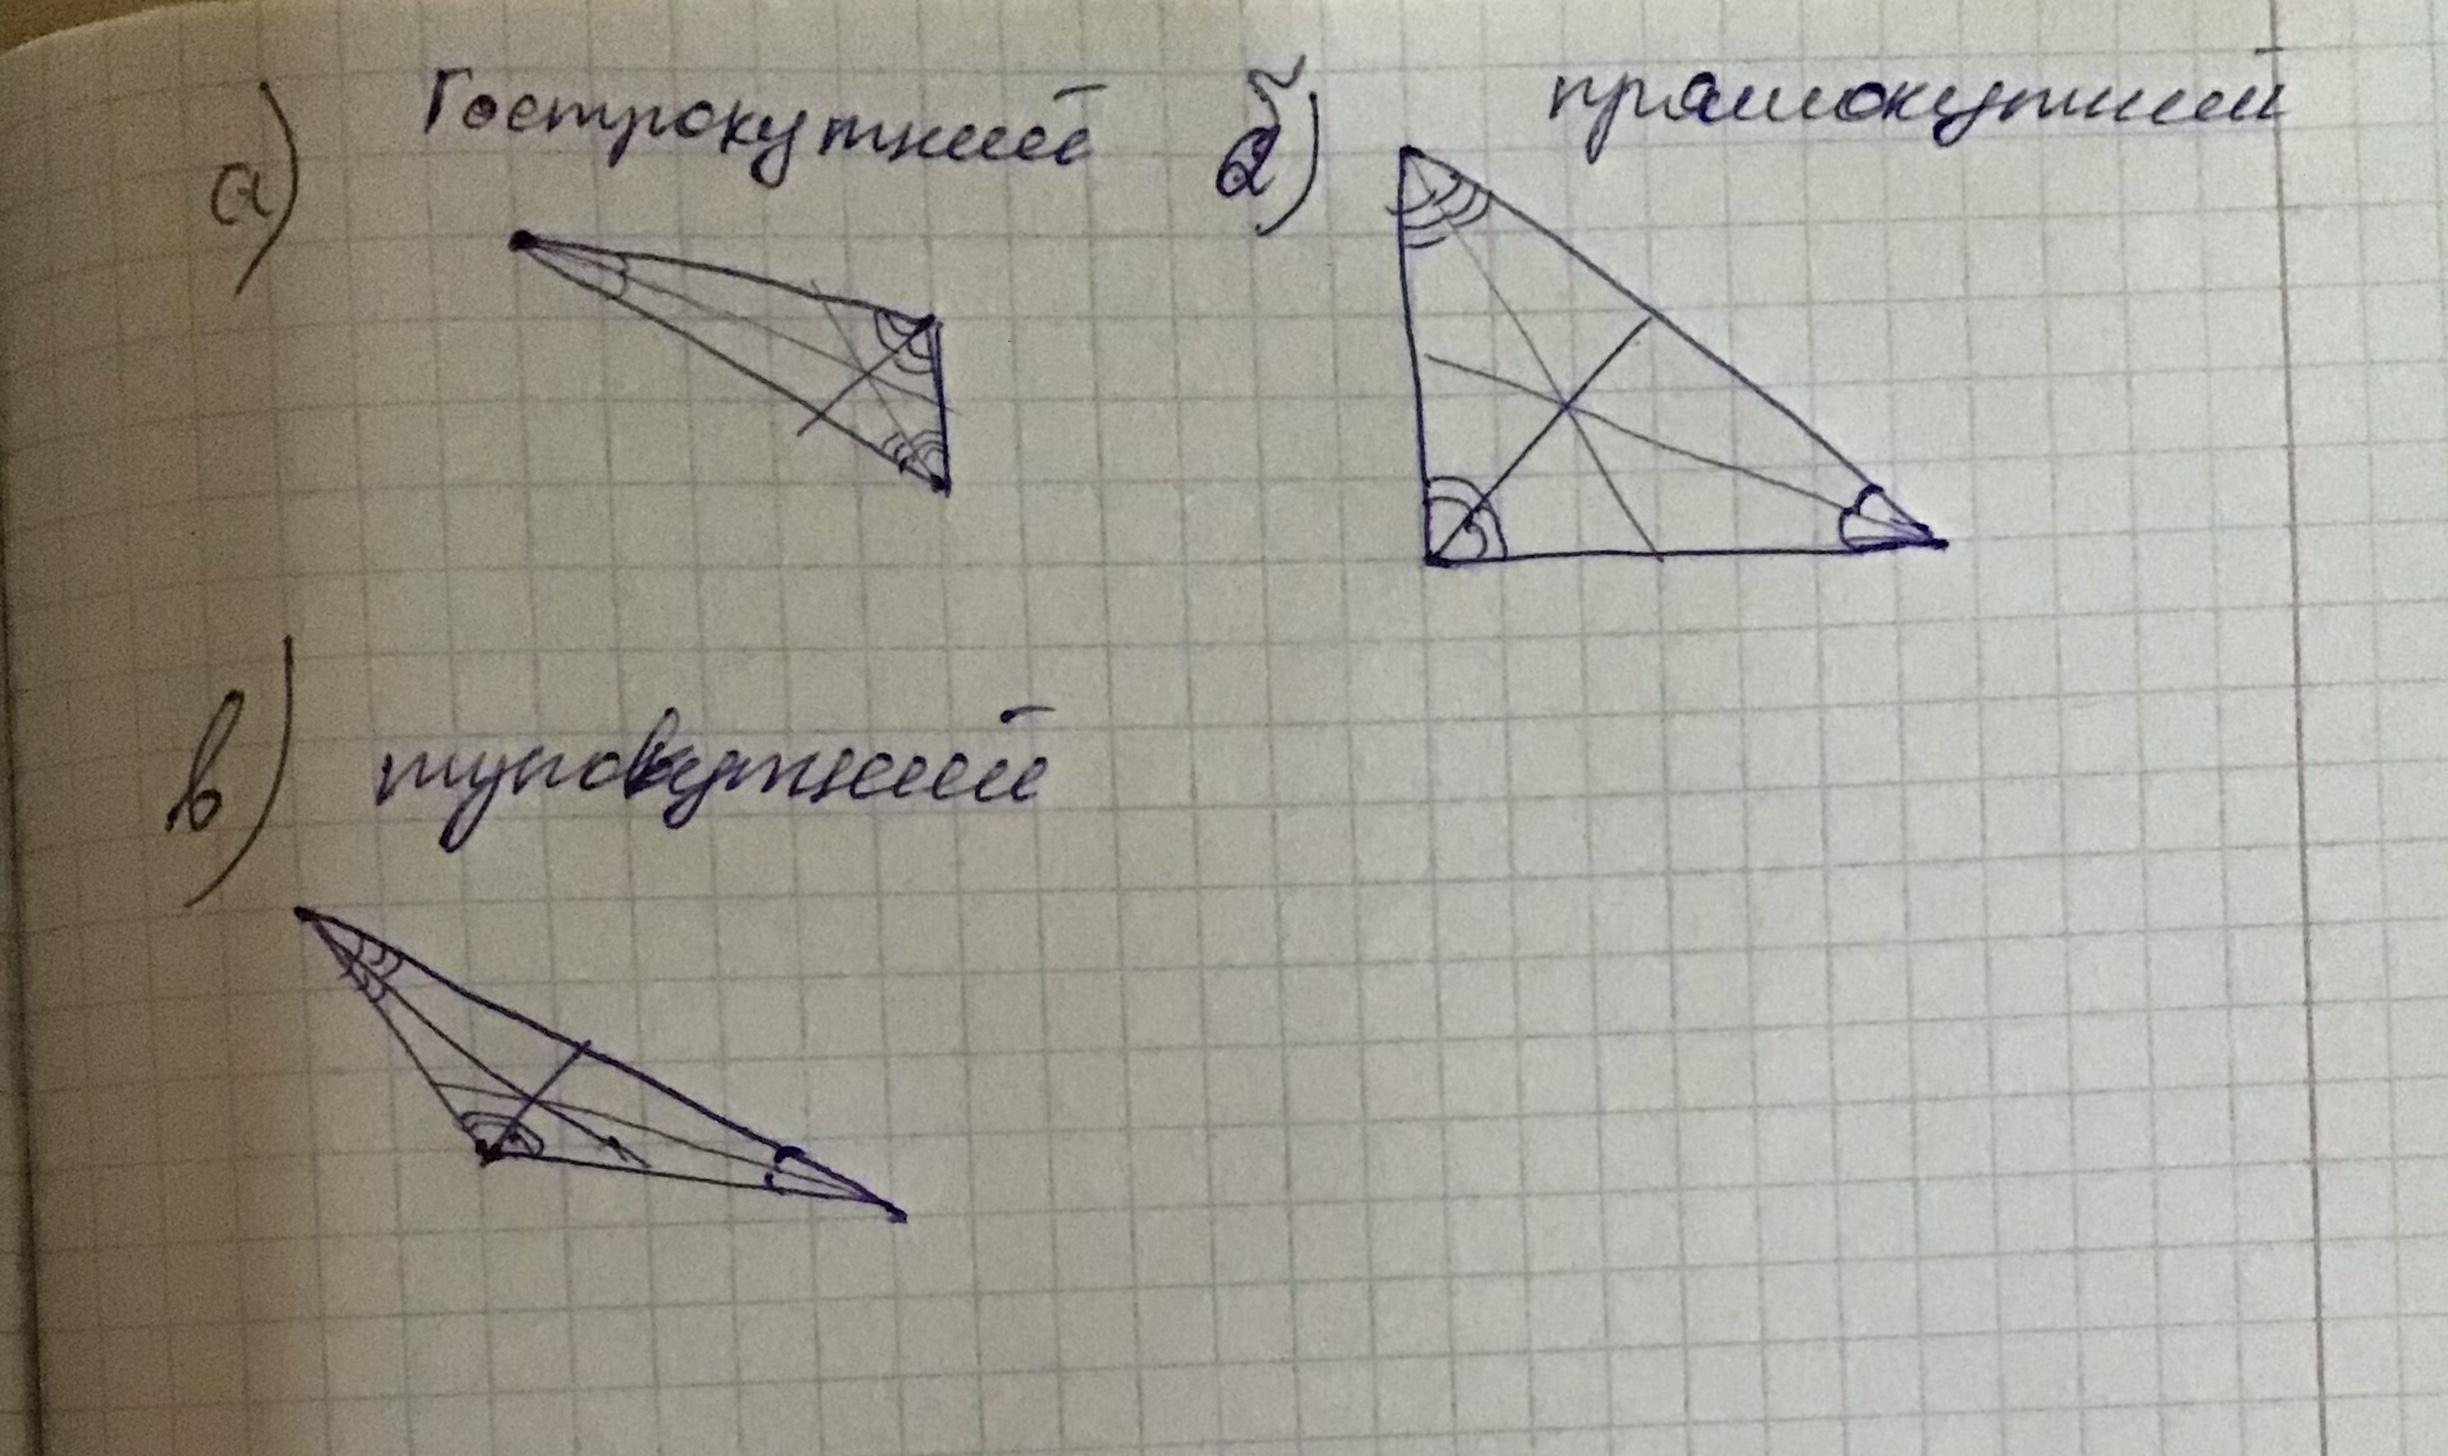 а) Гострокутний
б) прямокутний
в) тупокутний